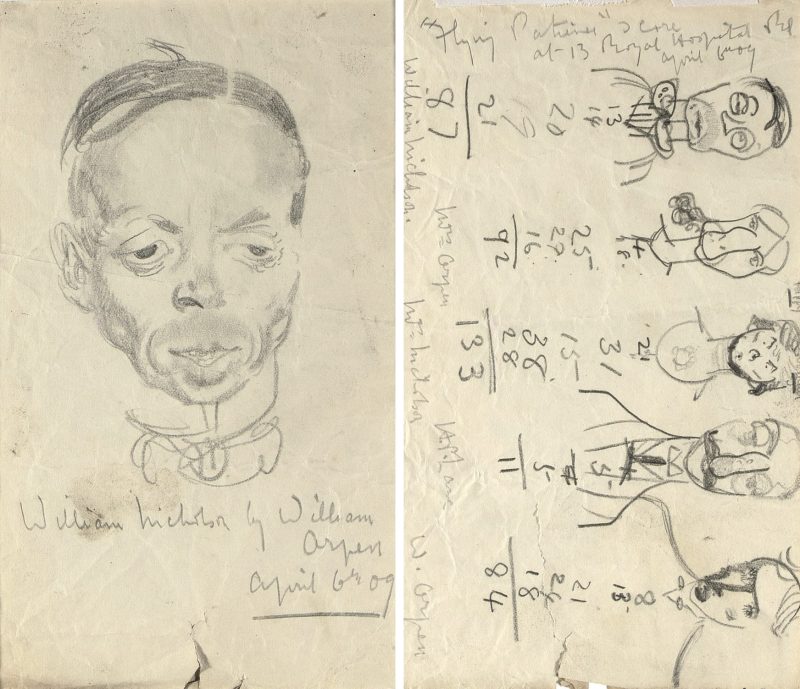 William Nicholson by William
Orpen
April 6th 09
"Flying Patience" Score
at 13 Royal Hospital Rd
April 6th 09
13
14
20
19
21
87
William Nicholson.
25
27
16
92
Mrs Orpen
21
31
15
38
28
133
Mrs Nicholson
5
5
11
H.P. Lane
8
13
21
24
18
84
W. Orpen